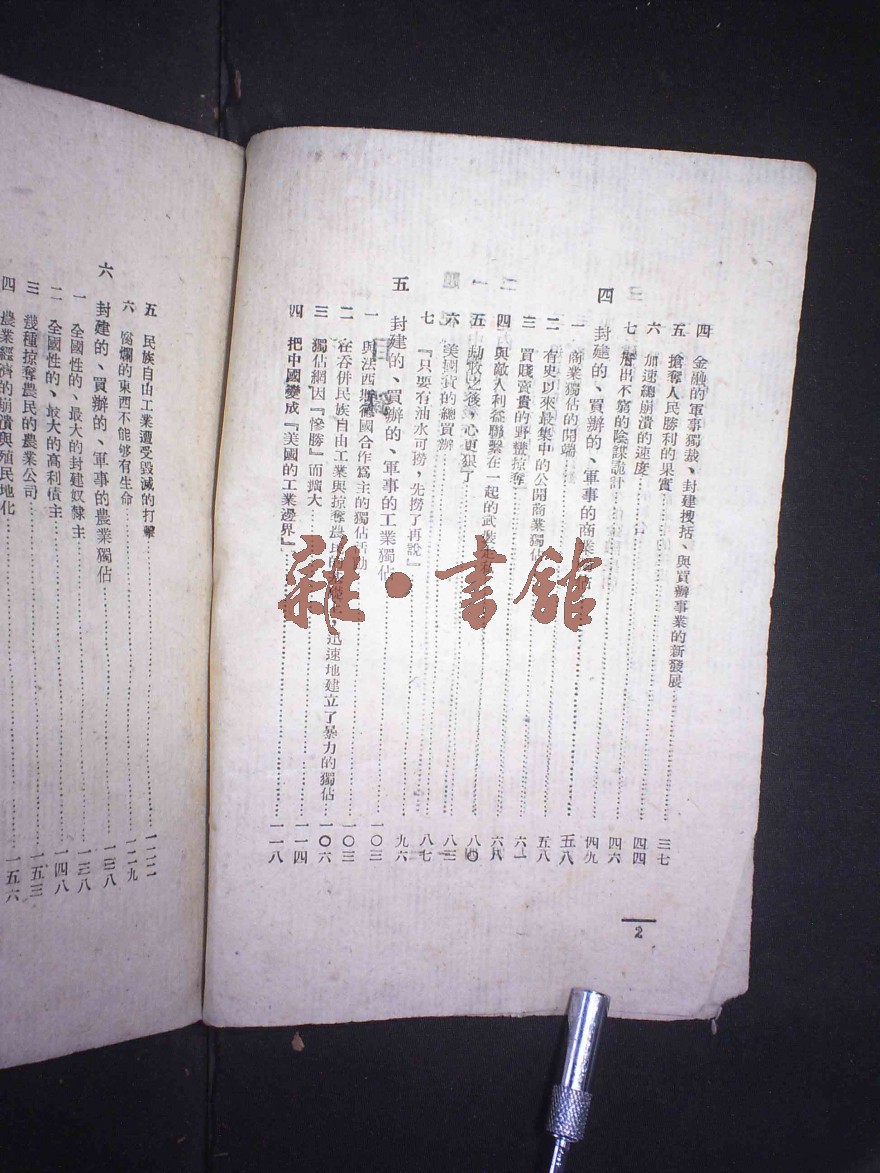 四 金融的軍事獨裁、封建搜括、與買辦事業的新發展……三七
五 搶奪人民勝利的果實……四四
六 加速總崩潰的速度……四六
七 層出不窮的陰謀詭計……四九
四 封建的、買辦的、軍事的商業……五八
一 商業獨佔的開端……五八
二 有史以來最集中的公開商業獨佔……六一
三 買賤賣貴的野蠻掠奪……六八
四 與敵人利益聯繫在一起的武裝走私……八〇
五 劫收之後、心更狠了……八三
六 美國貨的總買辦……八七
七 『只要有油水可撈、先撈了再說』……九六
五 封建的、買辦的、軍事的工業獨佔……一〇三
一 與法西斯德國合作爲主的獨佔活動……一〇三
二 在吞併民族自由工業與掠奪農民的迅速地建立了暴力的獨佔……一〇六
三 獨佔網因『慘勝』而擴大……一一四
四 把中國變成『美國的工業邊界』……一一八
2
五 民族自由工業遭受毀滅的打擊……一二二
六 腐爛的東西不能够有生命……一二九
六 封建的、買辦的、軍事的農業獨佔……一三八
一 全國性的、最大的封建奴隸主……一三八
二 全國性的、最大的高利債主……一四八
三 幾種掠奪農民的農業公司……一五三
四 農業經濟的崩潰與殖民地化……一五六
雜·書館